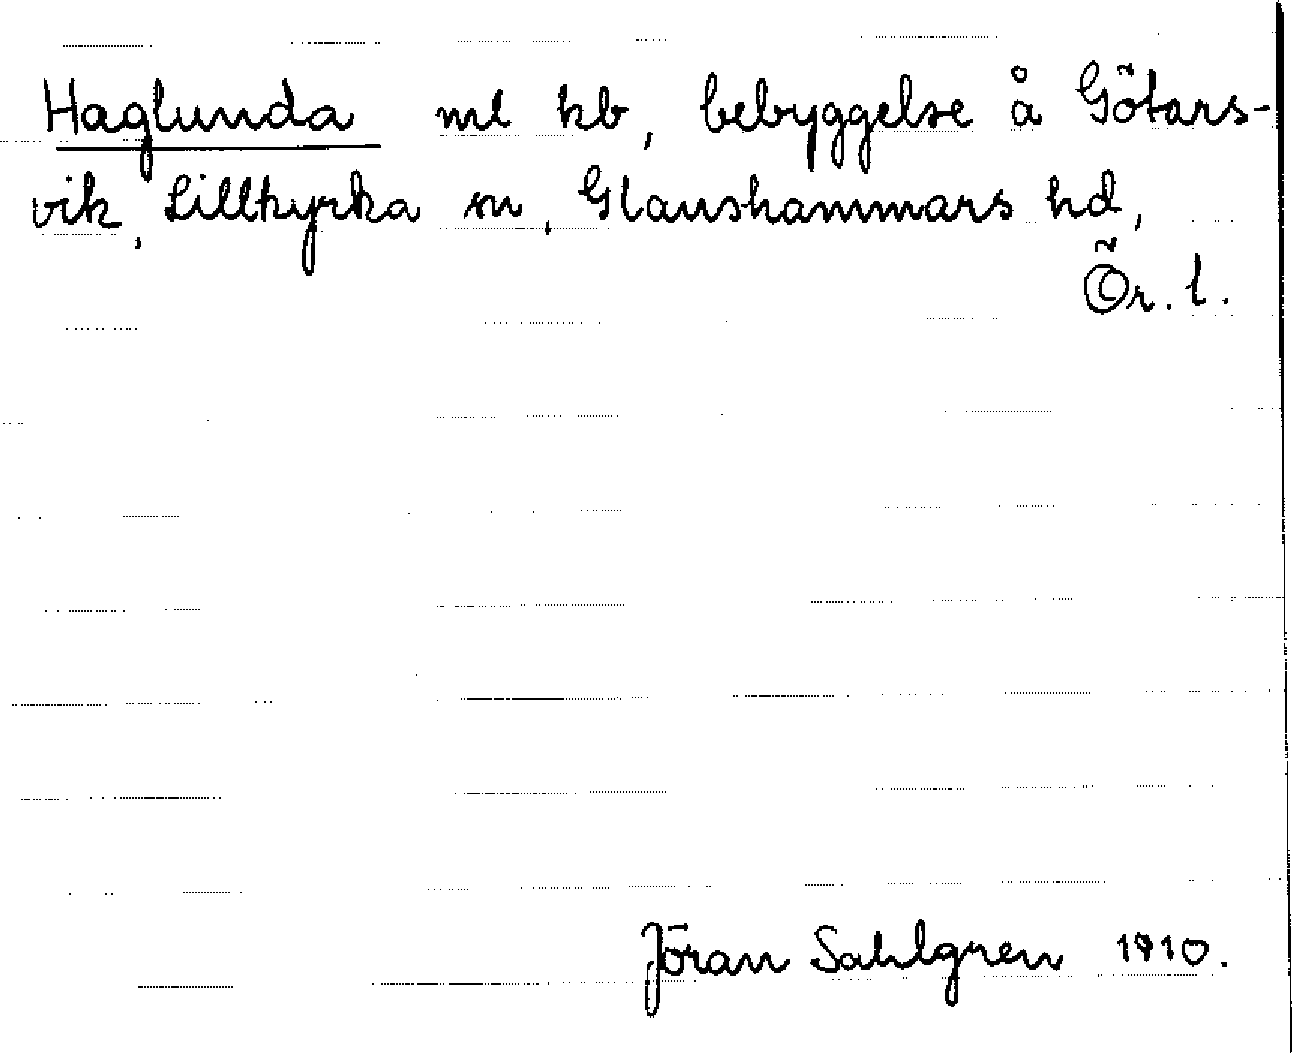 Haglunda ml kb, bebyggelse å Götars-
vik, Lillkyrka sn, Glanshammars hd,
Ör. l.
Jöran Sahlgren 1910.